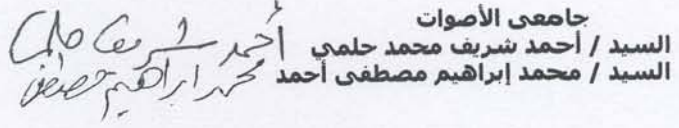 جامعى الأصوات
السيد / أحمد شريف محمد حلمي أحمد شريف حلمى
السيد / محمد إبراهيم مصطفى أحمد محمد ابراهيم مصطفى